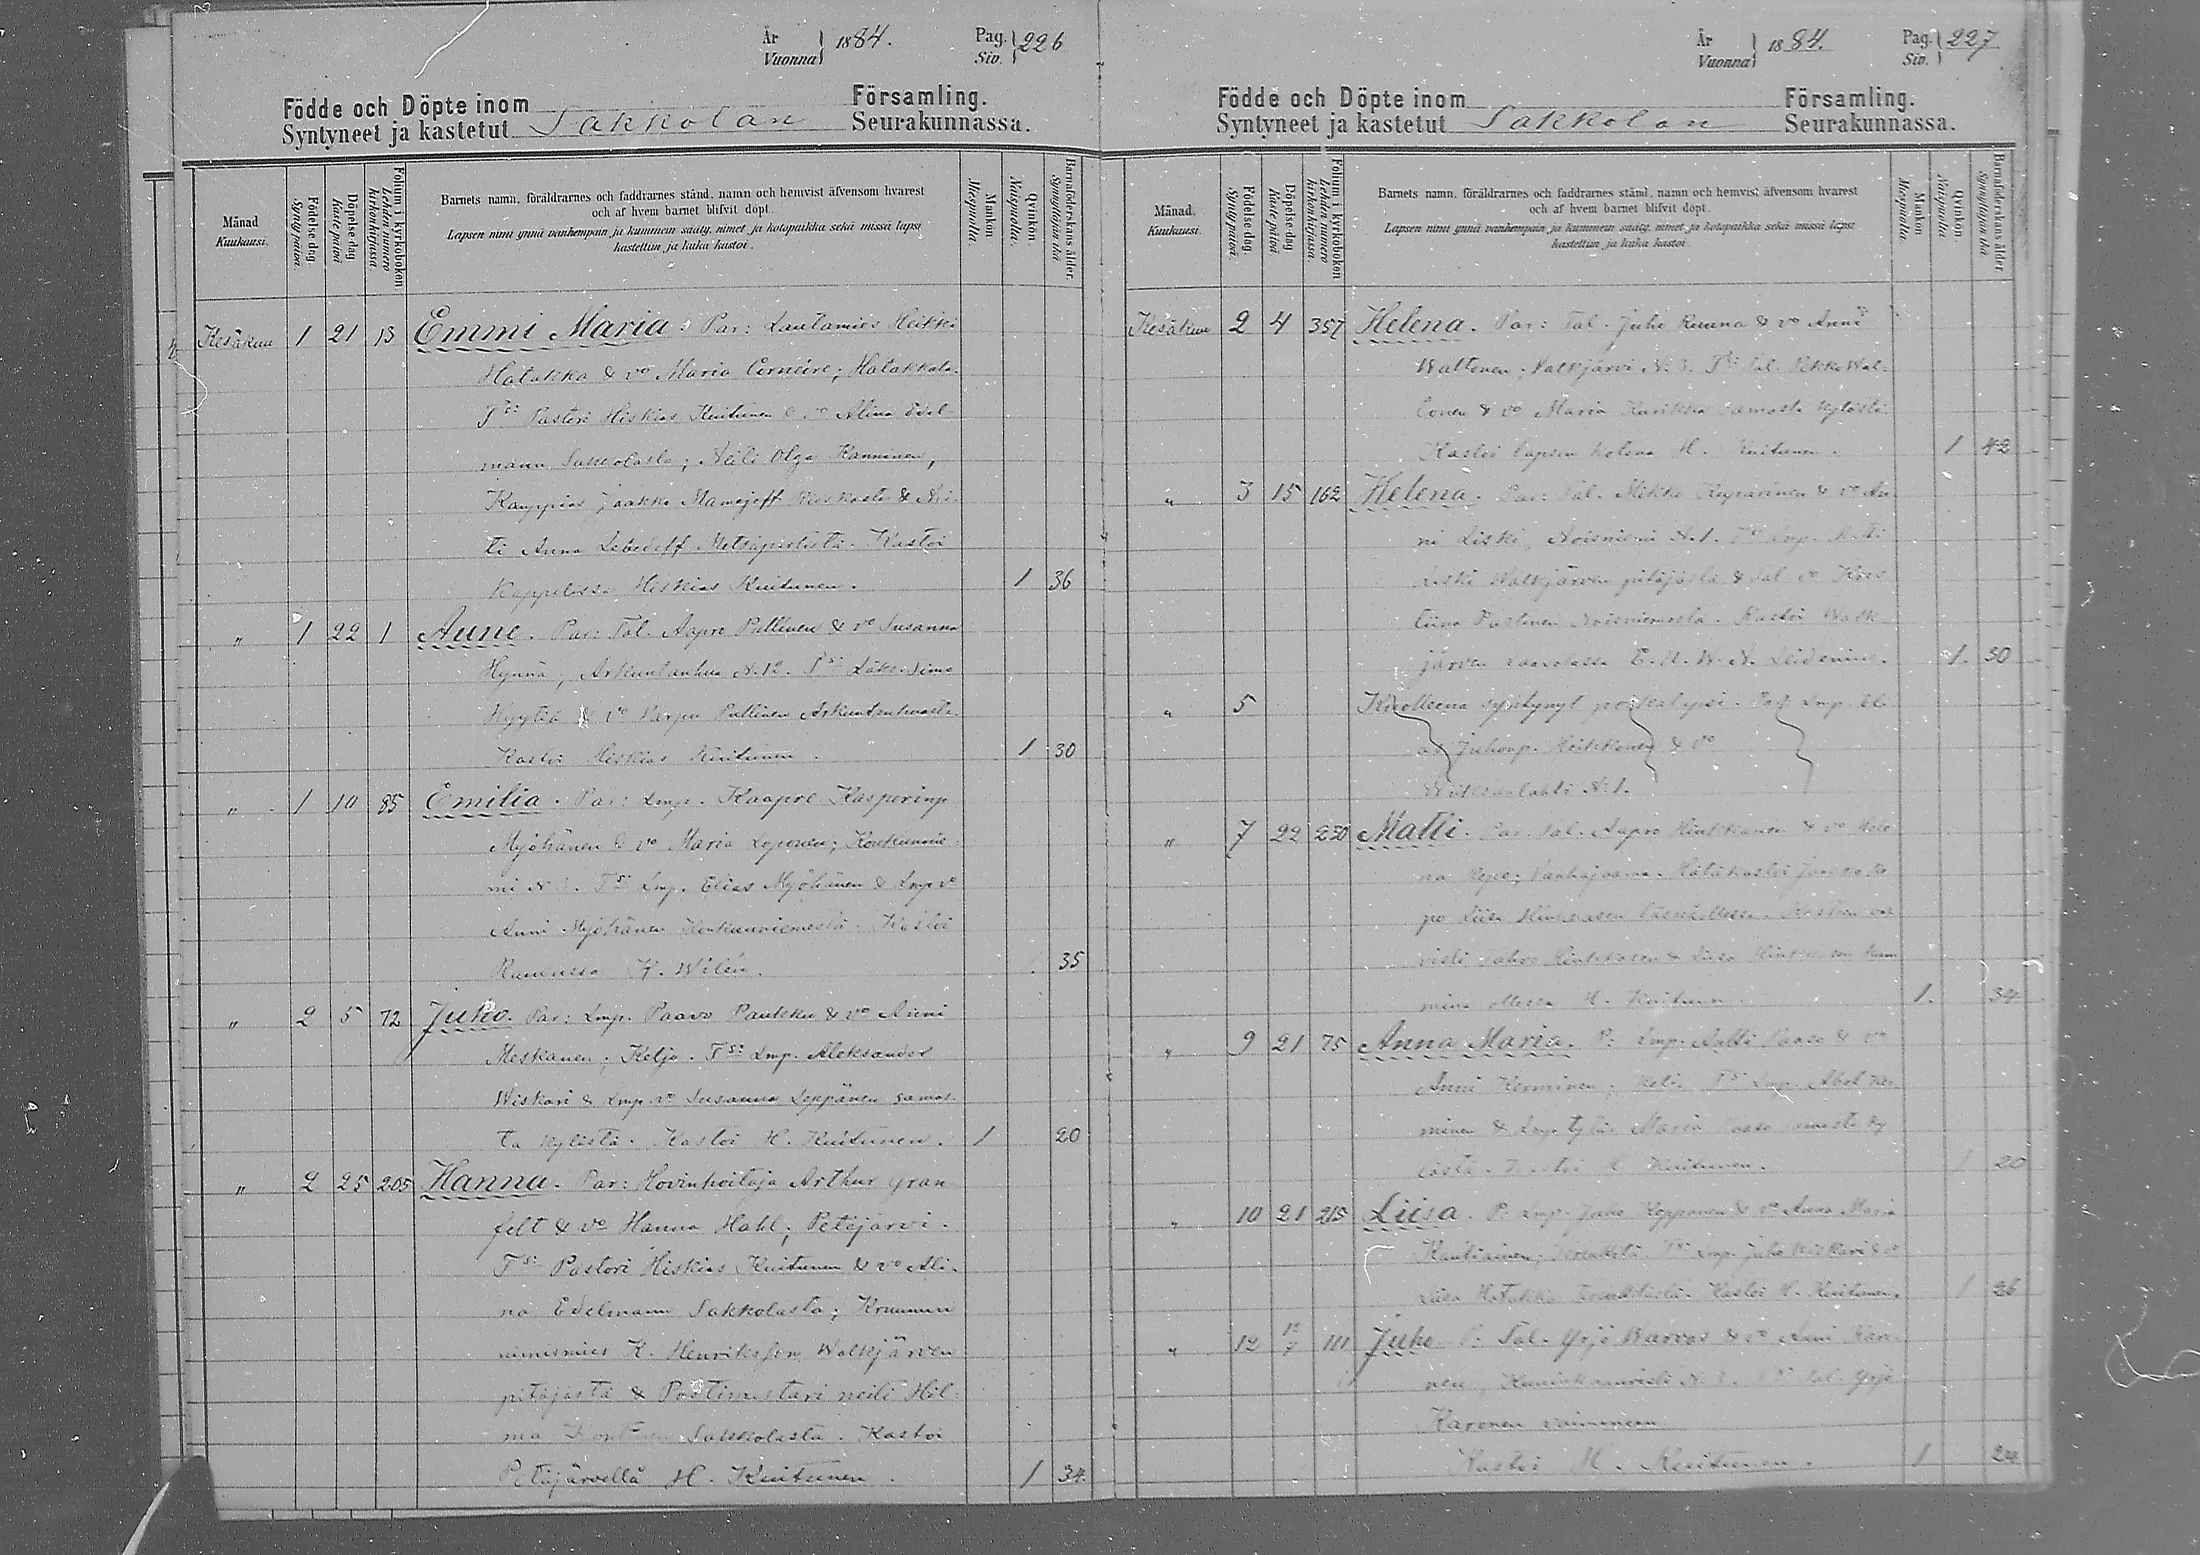 År
Vuonna } 1884.
Pag.
Siv. } 226
Födde och Döpte inom Församling.
Syntyneet ja kastetut Sakkolan Seurakunnassa.
Månad
Kuukausi.
Födelse dag.
Syntypäivä.
Döpelse dag
Kastepäivä
Folium i kyrkoboken
Lehden numero kirkonkirjassa
Barnets namn, föräldrarnes och faddrarnes stånd, namn och hemvist äfvensom hvarest
och af hvem barnet blifvit döpt.
Lapsen nimi ynnä vanhempain ja kummein sääty, nimet ja kotopaikka sekä missä lapsi
kastettiin ja kuka kastoi.
Mankön.
Miespuolia.
Qvinkön.
Naispuolia.
Barnaföderskans ålder.
Synnyttäjän ikä
Kesäkuu 1 21 13 Emmi Maria: Par: Lautamies Heikki
Hatakka & vo Maria Corneire; Hatakkala.
Tsi Pastori Hiskias Kuitunen & vo Alina Edel-
mann Sakkolasta; Neiti Olga Kanninen,
Kauppias Jaakko Mamejeff & Nei-
ti Anna Lebedeff Metsäpirtistä. Kastoi
Kappelissa Hiskias Kuitunen. 1 36
" 1 22 1 Aune. Par: Tal. Aapro Pullinen & vo Susanna
Hynnä, Arkuntanhua N. 12. Tsi Simo
Hyytiä & vo Varpu Pullinen Arkuntanhuasta.
Kastoi Hiskias Kuitunen. 1 30
" 1 10 85 Emilia. Par: Lmp. Kaapre Kasperinp
Myöhänen & vo Maria Loponen; Konkunnie-
mi N 3. Tsi Lmp. Elias Myöhänen & Lmp vo
Anni Myöhänen Konkunniemestä. Kastoi
K. Wilén. 35
" 2 5 72 Juho. Par: Lmp. Paavo Paukku & vo Anni
Meskanen; Kelja. Tsi Lmp. Aleksander
Wiskari & Lmp. vo Susanna Leppänen samas-
ta kylästä. Kastoi H. Kuitunen. 1 20
" 2 25 205 Hanna. Par: Hovinhoitaja Arthur Gran
felt & vo Hanna Hahl; Petäjärvi.
Tsi Pastori Hiskias Kuitunen & vo Ali-
na Edelmann Sakkolasta; Kruunun
nimismies K. Henriksson Walkjärven
pitäjästä & Postimestari neiti Hil-
ma Sakkolasta. Kastoi
Petäjärvellä H. Kuitunen. 1 34
År
Vuonna } 1884.
Pag.
Siv. } 227
Födde och Döpte inom Församling.
Syntyneet ja kastetut Sakkolan Seurakunnassa.
Månad.
Kuukausi.
Födelse dag.
Syntypäivä
Döpelse dag
Kastepäivä
Folium i kyrkoboken
Lehden numero kirkonkirjassa.
Barnets namn, föräldrarnes och faddrarnes stånd, namn och hemvist äfvensom hvarest
och af hvem barnet blifvit döpt.
Lapsen nimi ynnä vanhempain ja kummein sääty, nimet ja kotopaikka sekä missä lapsi
kastettiin ja kuka kastoi.
Mankön
Miespuolia
Qvinkön.
Naispuolia
Barnaföderskans ålder
Synnyttäjän ikä
Kesäkuu 2 4 357 Helena. Par: Tal. Juho Ruuna & vo Anni
Waltonen; Valkjärvi N. 3. Tsi Tal. Pekka Wal-
tonen & vo Maria Kurikka samasta kylästä.
Kastoi lapsen kotona H. Kuitunen. 1 42
" 3 15 162 Helena. Par: Tal. Mikko Kuparinen & vo An-
ni Liski, Noisniemi N. 1. Tsi Lmp. Matti
Liski Walkjärven pitäjästä & tal vo
Noisniemestä. Kastoi Walk-
järven 1. 30
" 5 Kuolleena syntynyt poikalapsi. Par. Lmp.
Juhonp. Heikkonen & vo
N. 1.
" 7 22 230 Matti. Par. Tal. Aapro Hinkkanen & vo Hele-
na Repo; Vanhajaama. Hätäkastoi
po Liisa Hinkkasen läsnäollessa.
visti Hinkkasen & Liisa Hinkkasen kum
mina ollessa H. Kuitunen. 1. 34
" 9 21 75 Anna Maria. P: Lmp. Antti Paaso & vo
Anni Kerminen. Kelja. Tsi Lmp. Abel Ker
minen & Lmp tytär Maria Paaso samasta ky
lästä. Kastoi H Kuitunen. 1 20
" 10 21 215 Liisa. P. Lmp. Juho Repponen & vo Anna Maria
Kautiainen; Tsi Lmp. Juho Kiskari & vo
Liisa Hatakka Kastoi H. Kuitunen. 1 26
" 12 12/7 111 Juho. P: Tal. Yrjö Warvas & vo Anni Karo-
nen, Kuninkaanristi N. 3. Tsi Tal. Yrjö
Karonen vaimoneen
Kastoi H. Kuitunen. 1 24